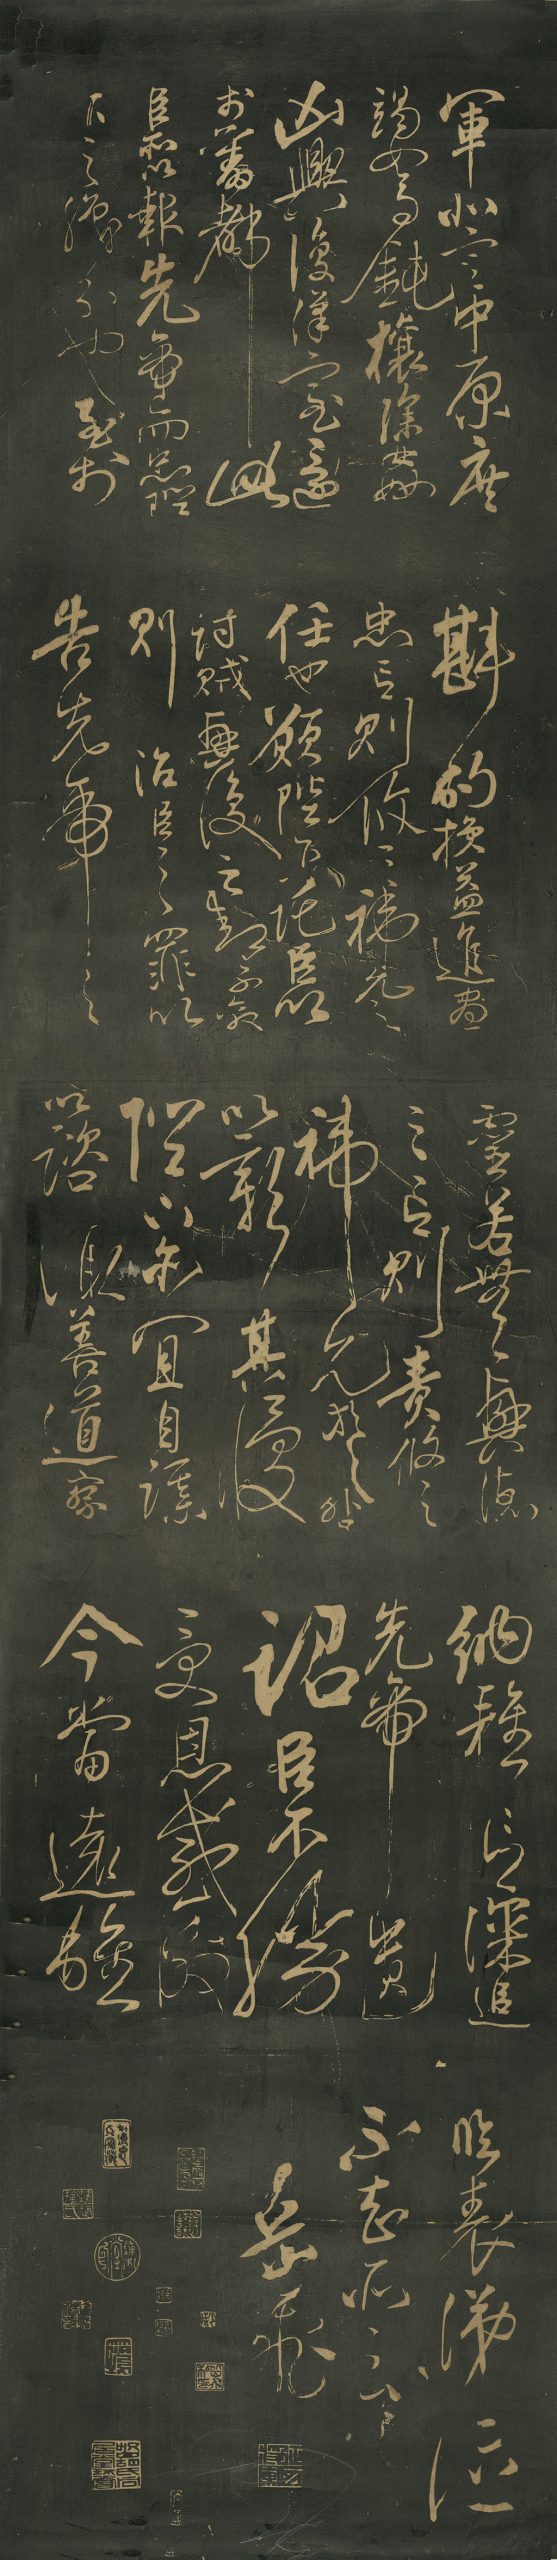 軍北定中原庶
竭駑鈍攘除姦
凶興復漢室還
於舊都此
臣所以報先帝而忠陛
下之職分也至於
斟酌損益進盡
忠言則攸之禕允之
任也願陛下託臣以
討賊興復之效不效
則治臣之罪以
告先帝之
靈若無興德
之言則責攸之
禕允之咎
以彰其慢
陛下亦宜自謀
以諮諏善道察
納雅言深追
先帝遺
詔臣不勝
受恩感激
今當遠離
臨表涕泣
不知所云
岳飛